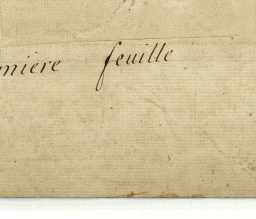 miere feuille